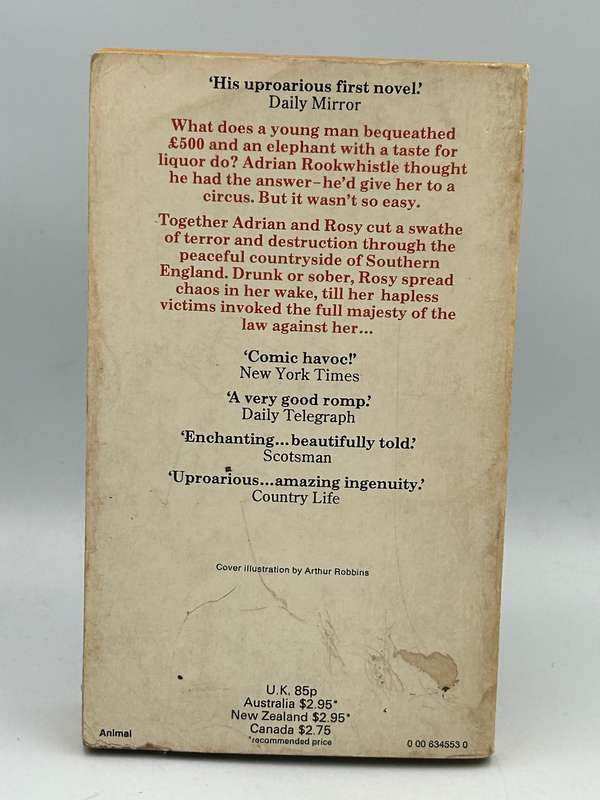 ‘His uproarious first novel.’
Daily Mirror
What does a young man bequeathed
£500 and an elephant with a taste for
liquor do? Adrian Rookwhistle thought
he had the answer–he’d give her to a
circus. But it wasn’t so easy.
Together Adrian and Rosy cut a swathe
of terror and destruction through the
peaceful countryside of Southern
England. Drunk or sober, Rosy spread
chaos in her wake, till her hapless
victims invoked the full majesty of the
law against her...
‘Comic havoc!’
New York Times
‘A very good romp.’
Daily Telegraph
‘Enchanting...beautifully told.’
Scotsman
‘Uproarious...amazing ingenuity.’
Country Life
Cover illustration by Arthur Robbins
U.K. 85p
Australia $2.95*
New Zealand $2.95*
Canada $2.75
*recommended price
Animal
0 00 634553 0